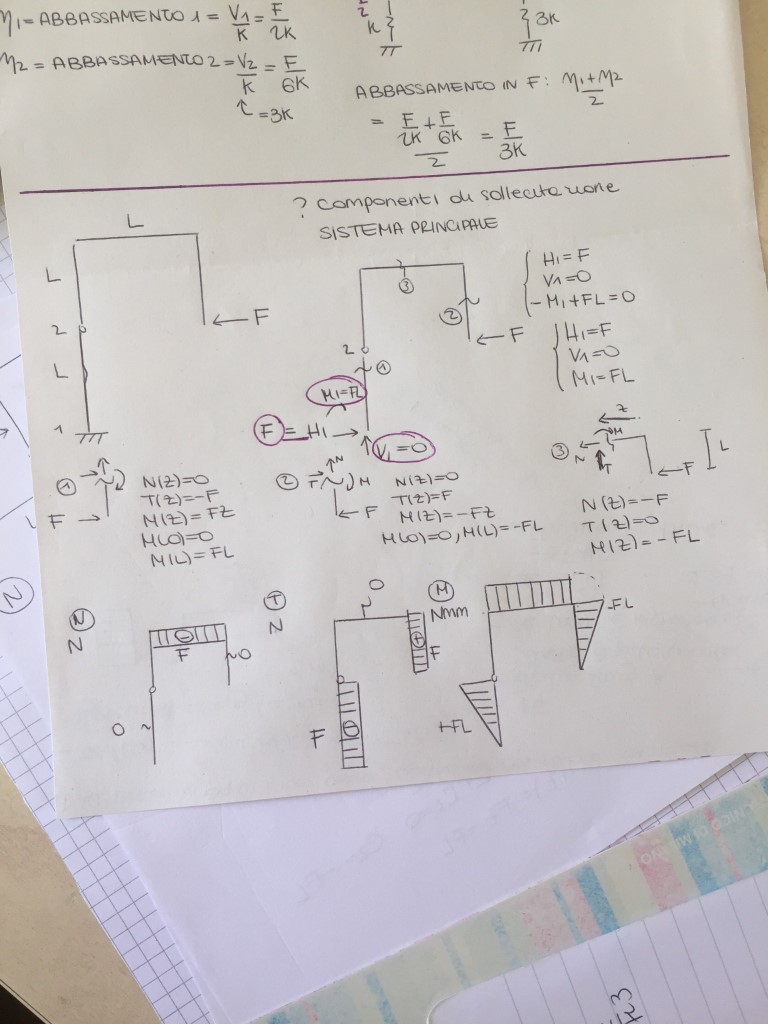 η1 = ABBASSAMENTO 1 = V1/K = F/2K
η2 = ABBASSAMENTO 2 = V2/K = F/6K
↑ = 3K
2
K
3K
ABBASSAMENTO IN F: η1+η2/2
= F/2K + F/6K / 2 = F/3K
? Componenti di sollecitazione
SISTEMA PRINCIPALE
L
L
2
L
1
← F
③
②
← F
2
①
M1=FL
F = H1 →
V1=0
H1 = F
V1=0
-M1+FL=0
H1=F
V1=0
M1=FL
① 
F →
N(z)=0
T(z)=-F
M(z)=Fz
M(0)=0
M(L)=FL
②
N
F
M
← F
N(z)=0
T(z)=F
M(z)=-Fz
M(0)=0, M(L)=-FL
③
z
M
N
T
← F
L
N(z)=-F
T(z)=0
M(z)=-FL
N
N
-
F
0
0
T
N
0
+
F
F
M
Nmm
-FL
+FL
N